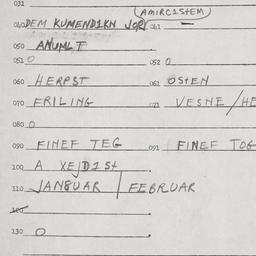 031
(AMIRCISTEM)
040 DEM KUMENDIKN JOR 041 —
050 ANUMLT
051 O 052 O
060 HERPST 061 OSTEN
070 FRILING 071 VESNE / HE
080 O
090 FINEF TEG 091 FINEF TOG
100 A XEJDISH
110 JANBUAR | FEBRUAR
120
130 O